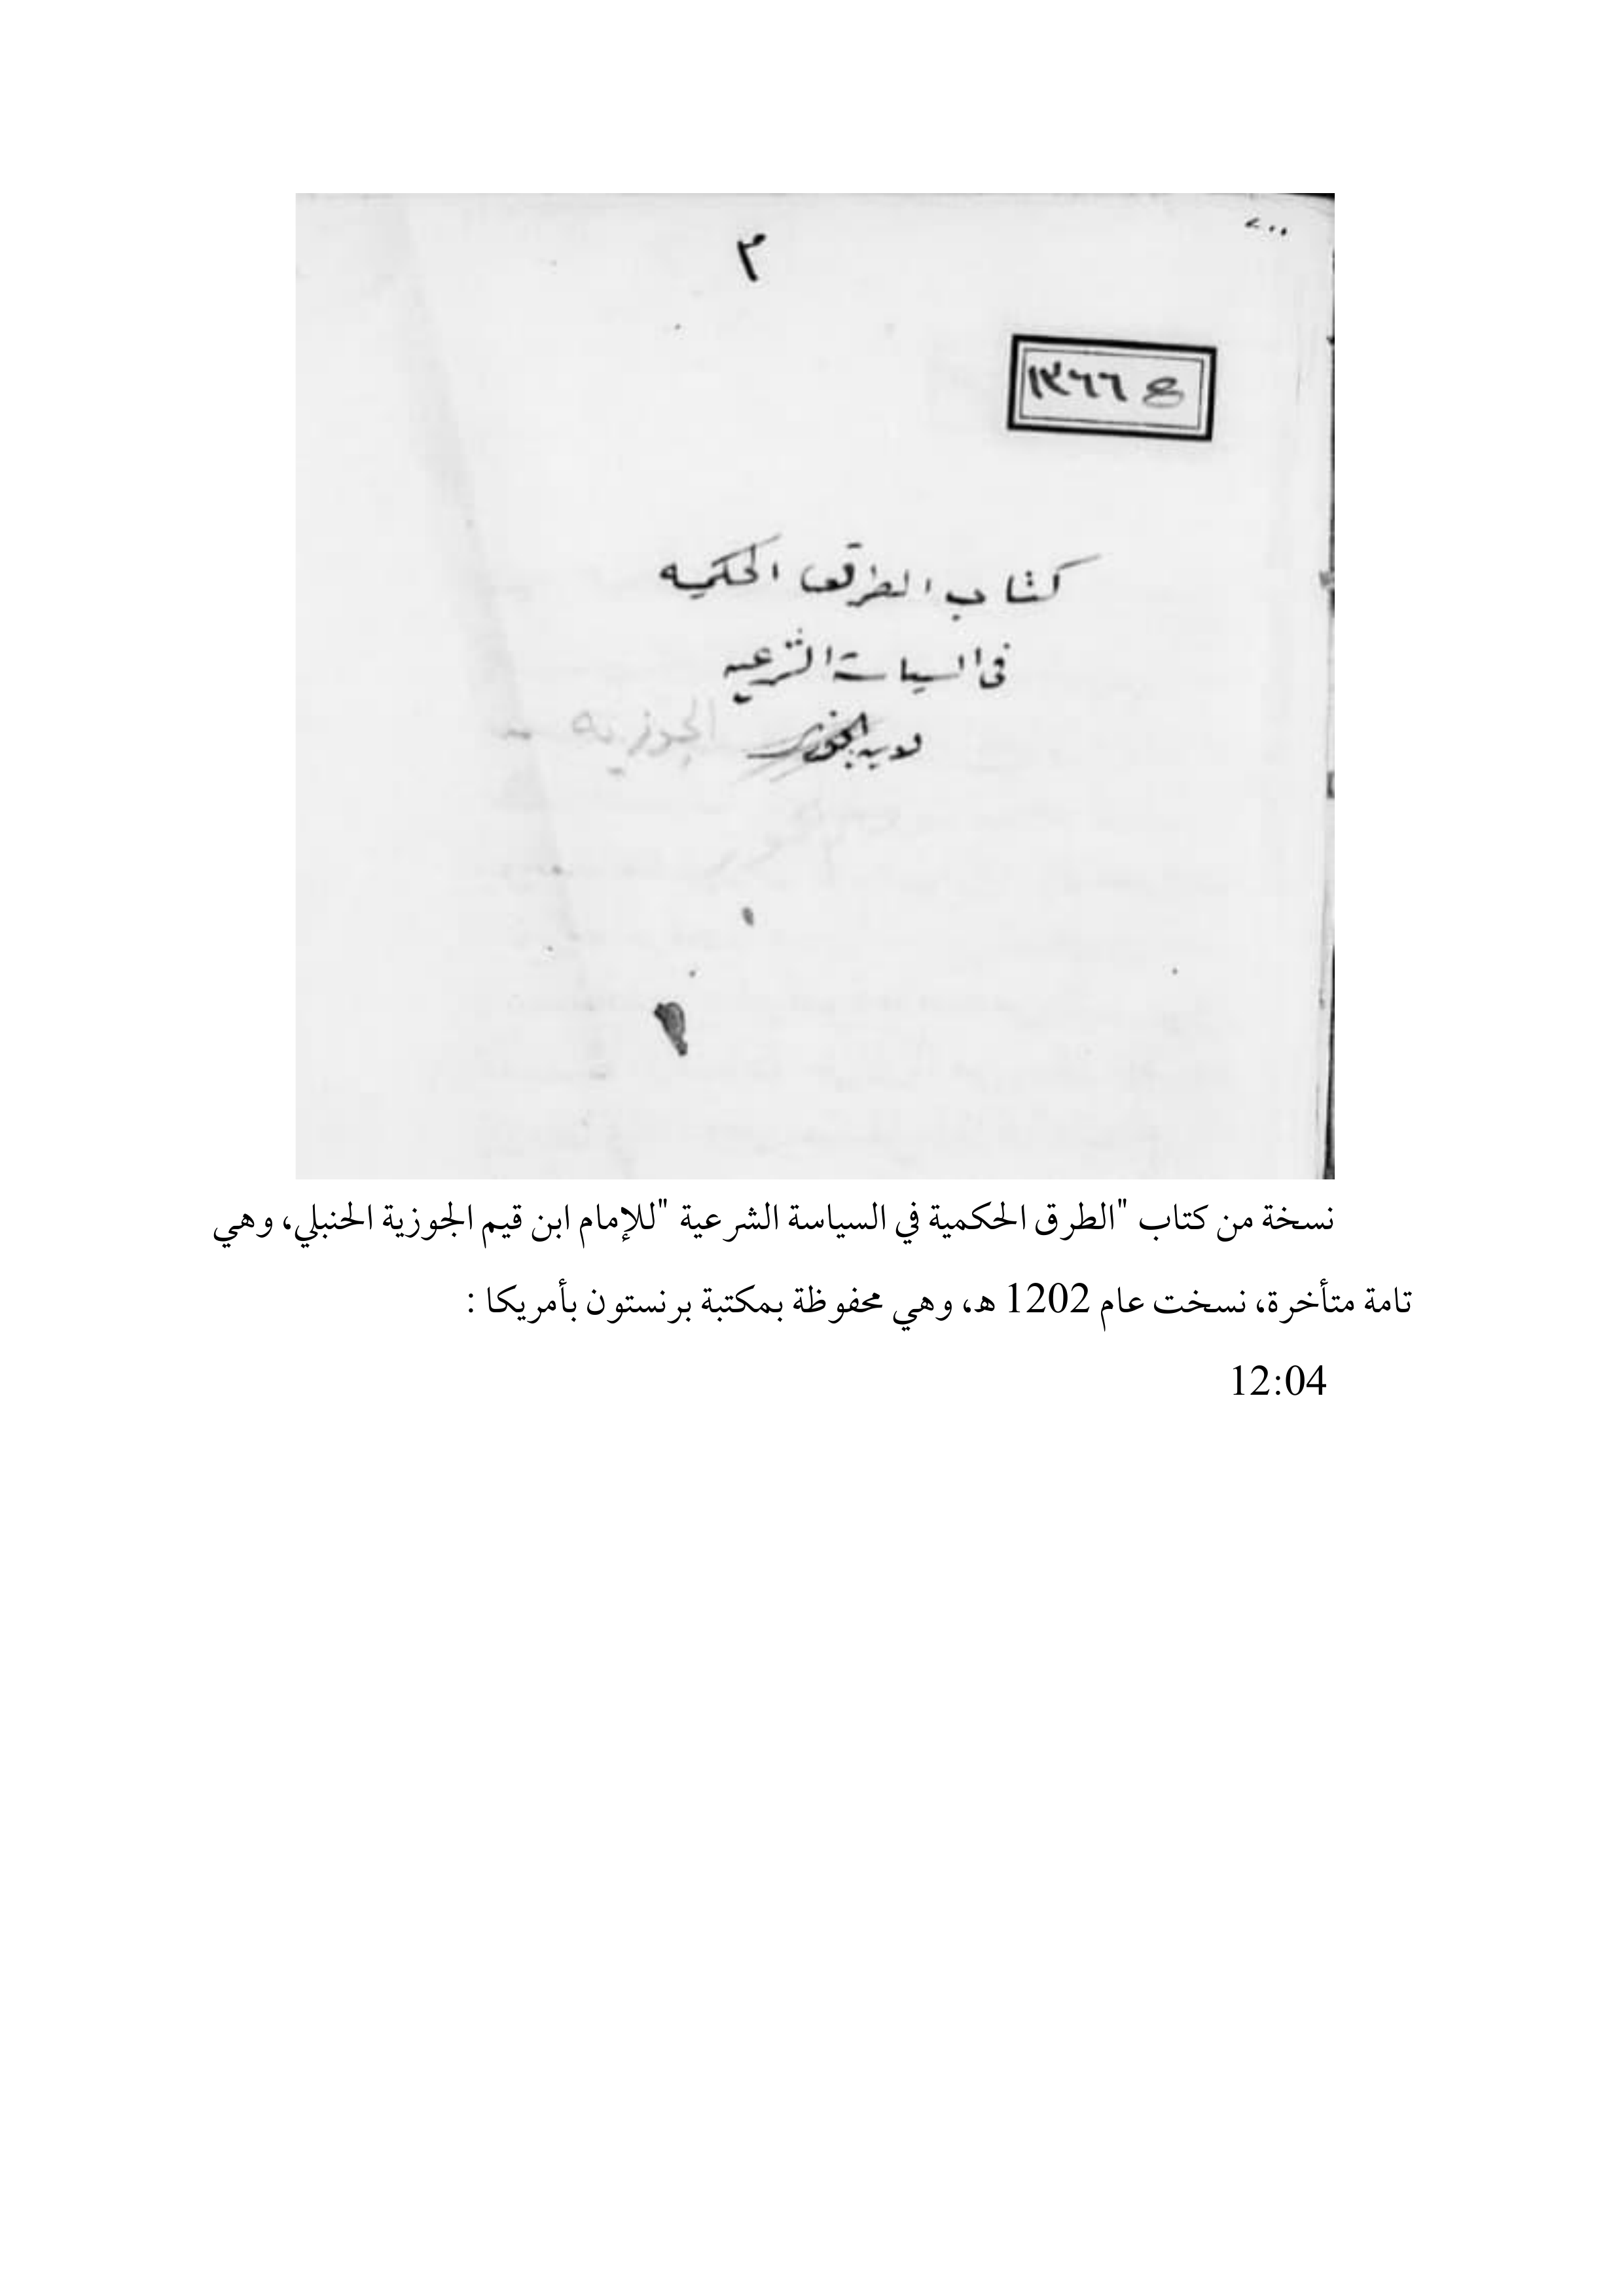 ٣
ع ١٣٦٦
كتاب الطرق الحكميه
فى السياسة الشرعيه
لابن الجوزى الجوزيه
نسخة من كتاب "الطرق الحكمية في السياسة الشرعية "للإمام ابن قيم الجوزية الحنبلي، وهي
تامة متأخرة، نسخت عام 1202 هـ، وهي محفوظة بمكتبة برنستون بأمريكا :
12:04